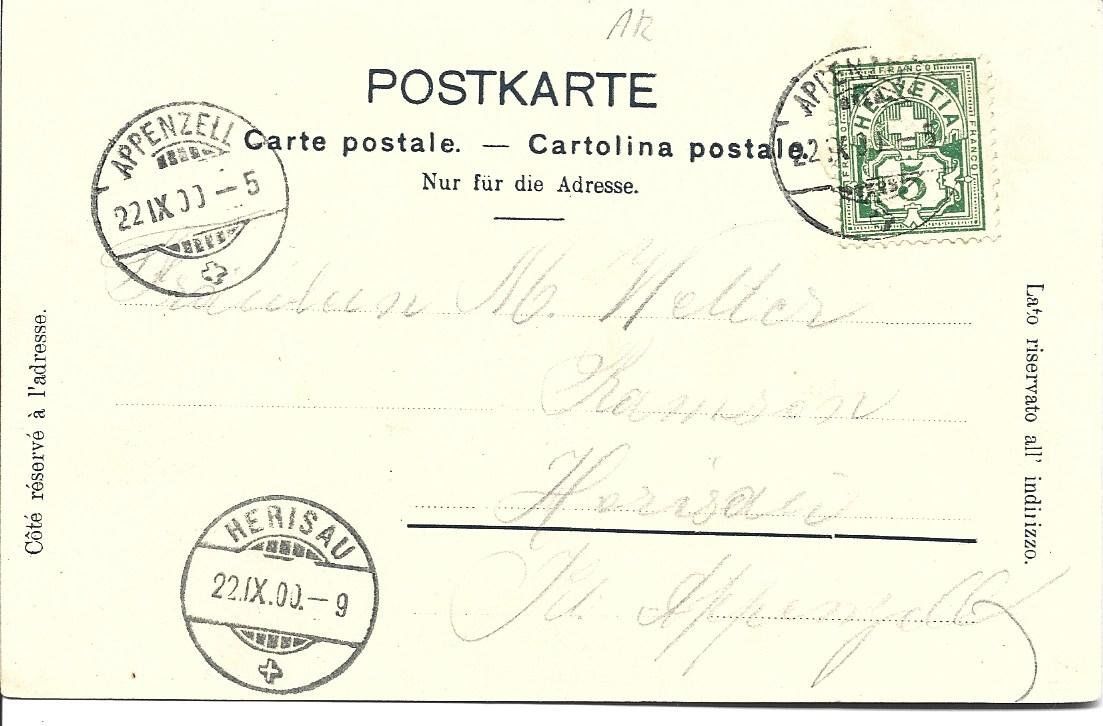 POSTKARTE
Carte postale. — Cartolina postale.
Nur für die Adresse.
APPENZELL
22.IX.00.–5
APPENZELL
22.IX.00.–5
FRANCO
FRANCO
FRANCO
HELVETIA
5
Fräulein M. Welter
Ramsen
Herisau
Kt. Appenzell
Côté réservé à l'adresse.
Lato riservato all' indirizzo.
HERISAU
22.IX.00.–9